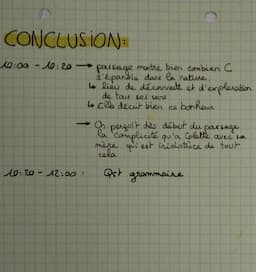 CONCLUSION:
10:00 - 10:20 → passage montre bien combien C
s'épanouie dans la nature.
↳ lieu de découverte et d'exploration
de tous ses sens
↳ Elle décrit bien ce bonheur
→ On perçoit dès début du passage
la complicité qu'a Colette avec sa
mère qui est iniatrice de tout
cela
10:20 - 12:00 : Qst grammaire